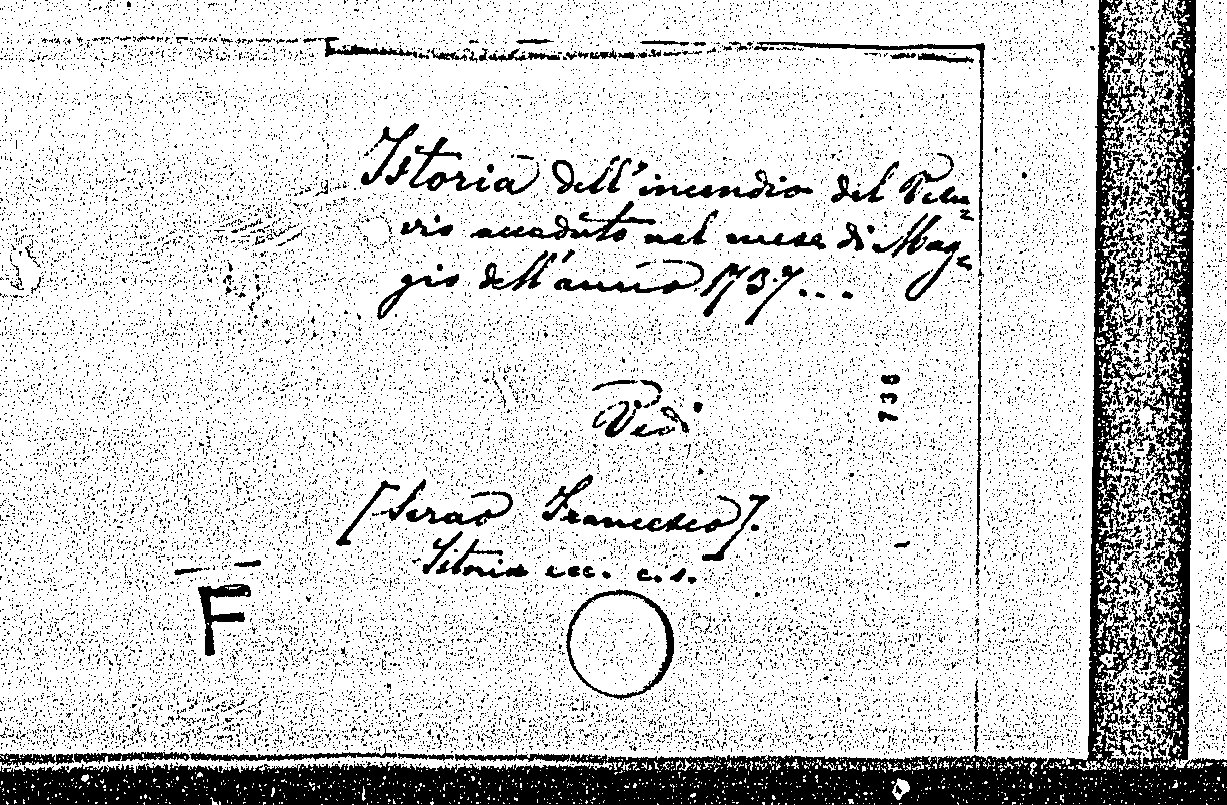 Istoria dell'incendio del Vesu=
vio accaduto nel mese di Mag=
gio dell'anno 1737...
736
Vedi
[Serao Francesco].
Istoria ecc. c.s.
F